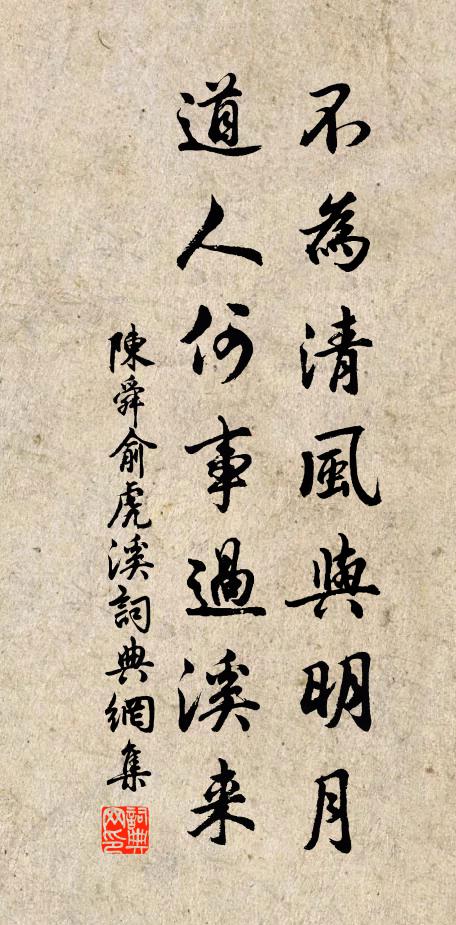 不為清風與明月
道人何事過溪来
陳舜俞虎溪詞典網集
詞典网印